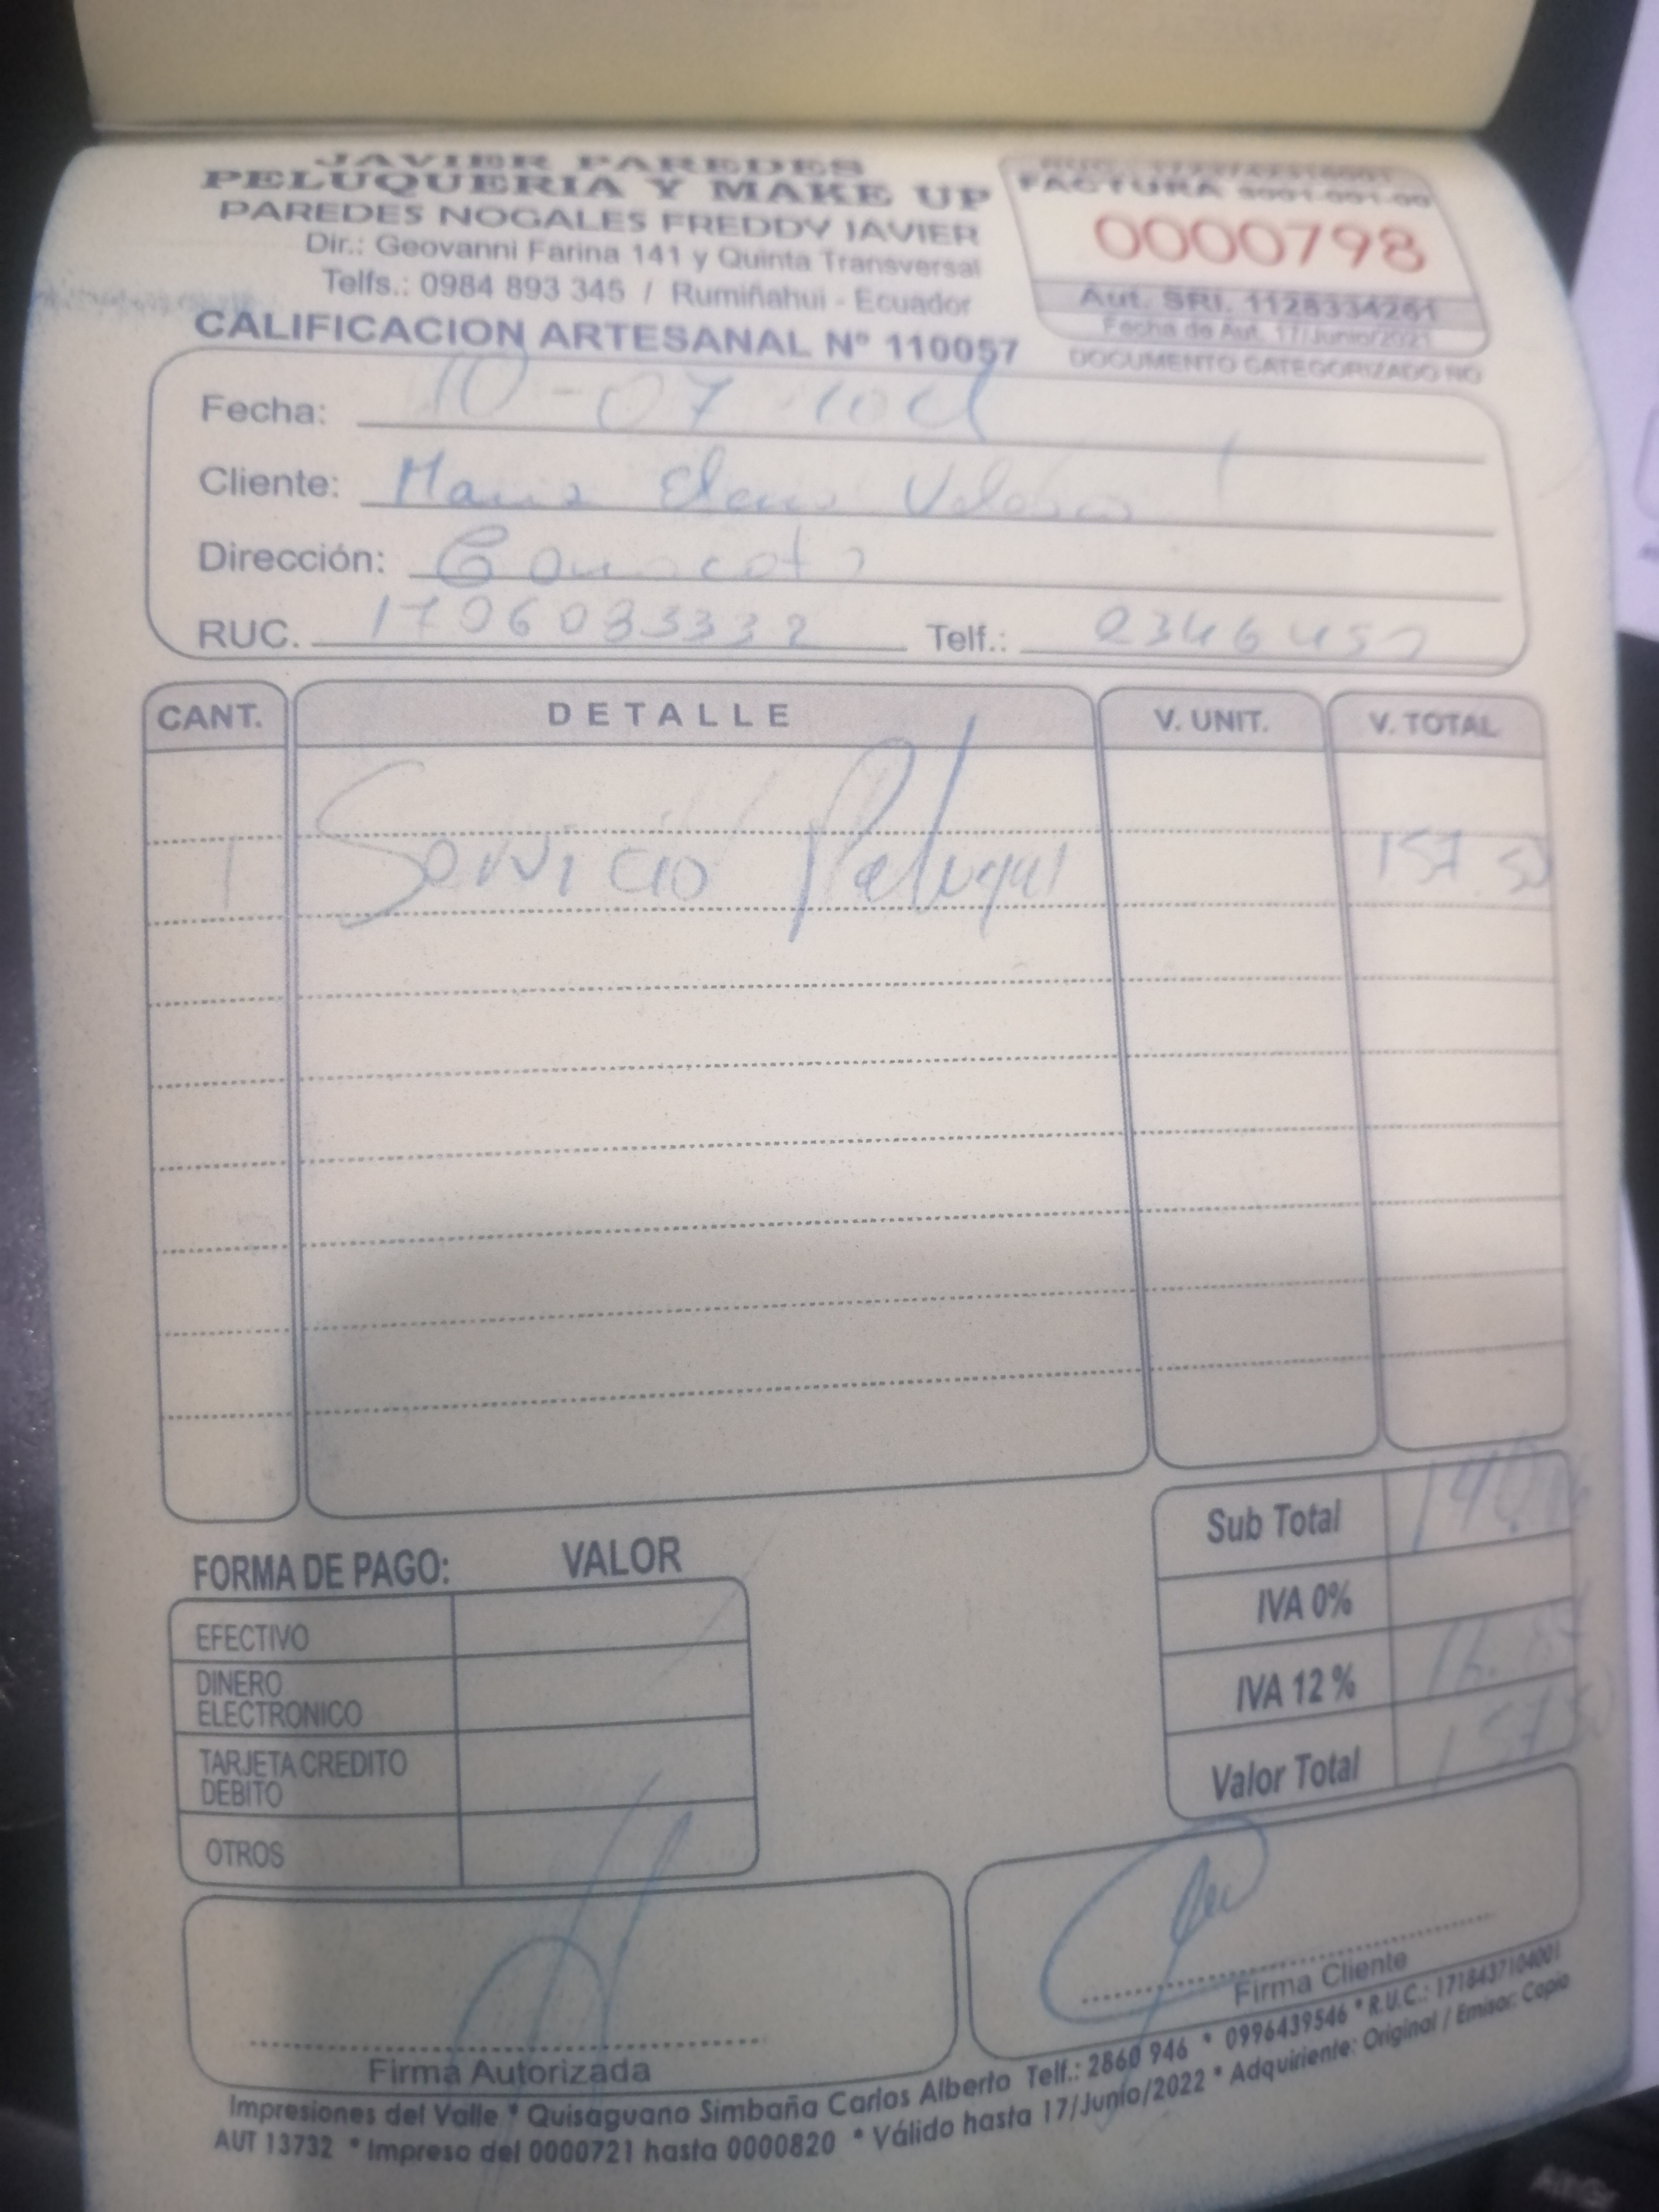 JAVIER PAREDES
PELUQUERIA Y MAKE UP
PAREDES NOGALES FREDDY JAVIER
Dir.: Geovanni Farina 141 y Quinta Transversal
Telfs.: 0984 893 345 / Rumiñahui - Ecuador
CALIFICACION ARTESANAL Nº 110057
FACTURA S001-001-00
0000798
Aut. SRI. 1128334261
Fecha de Aut. 17/Junio/2021
DOCUMENTO CATEGORIZADO NO
Fecha: 10-07
Cliente: Maria Elena
Dirección:
RUC. 1706083332 Telf.:
CANT. DETALLE V. UNIT. V. TOTAL
1 Servicio 157.50
Sub Total
IVA 0%
IVA 12 %
Valor Total 157.50
FORMA DE PAGO: VALOR
EFECTIVO
DINERO
ELECTRONICO
TARJETA CREDITO
DEBITO
OTROS
Firma Autorizada
Firma Cliente
Impresiones del Valle * Quisaguano Simbaña Carlos Alberto Telf.: 2860 946 * 0996439546 * R.U.C.: 1718437104001
AUT 13732 * Impreso del 0000721 hasta 0000820 * Válido hasta 17/Junio/2022 * Adquiriente: Original / Emisor: Copia